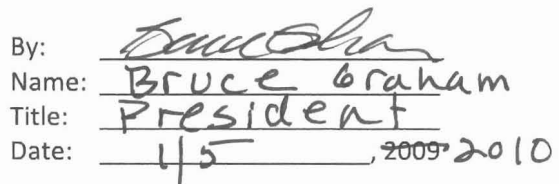 By:
Name: Bruce Graham
Title: President
Date: 1/5, 2009 2010